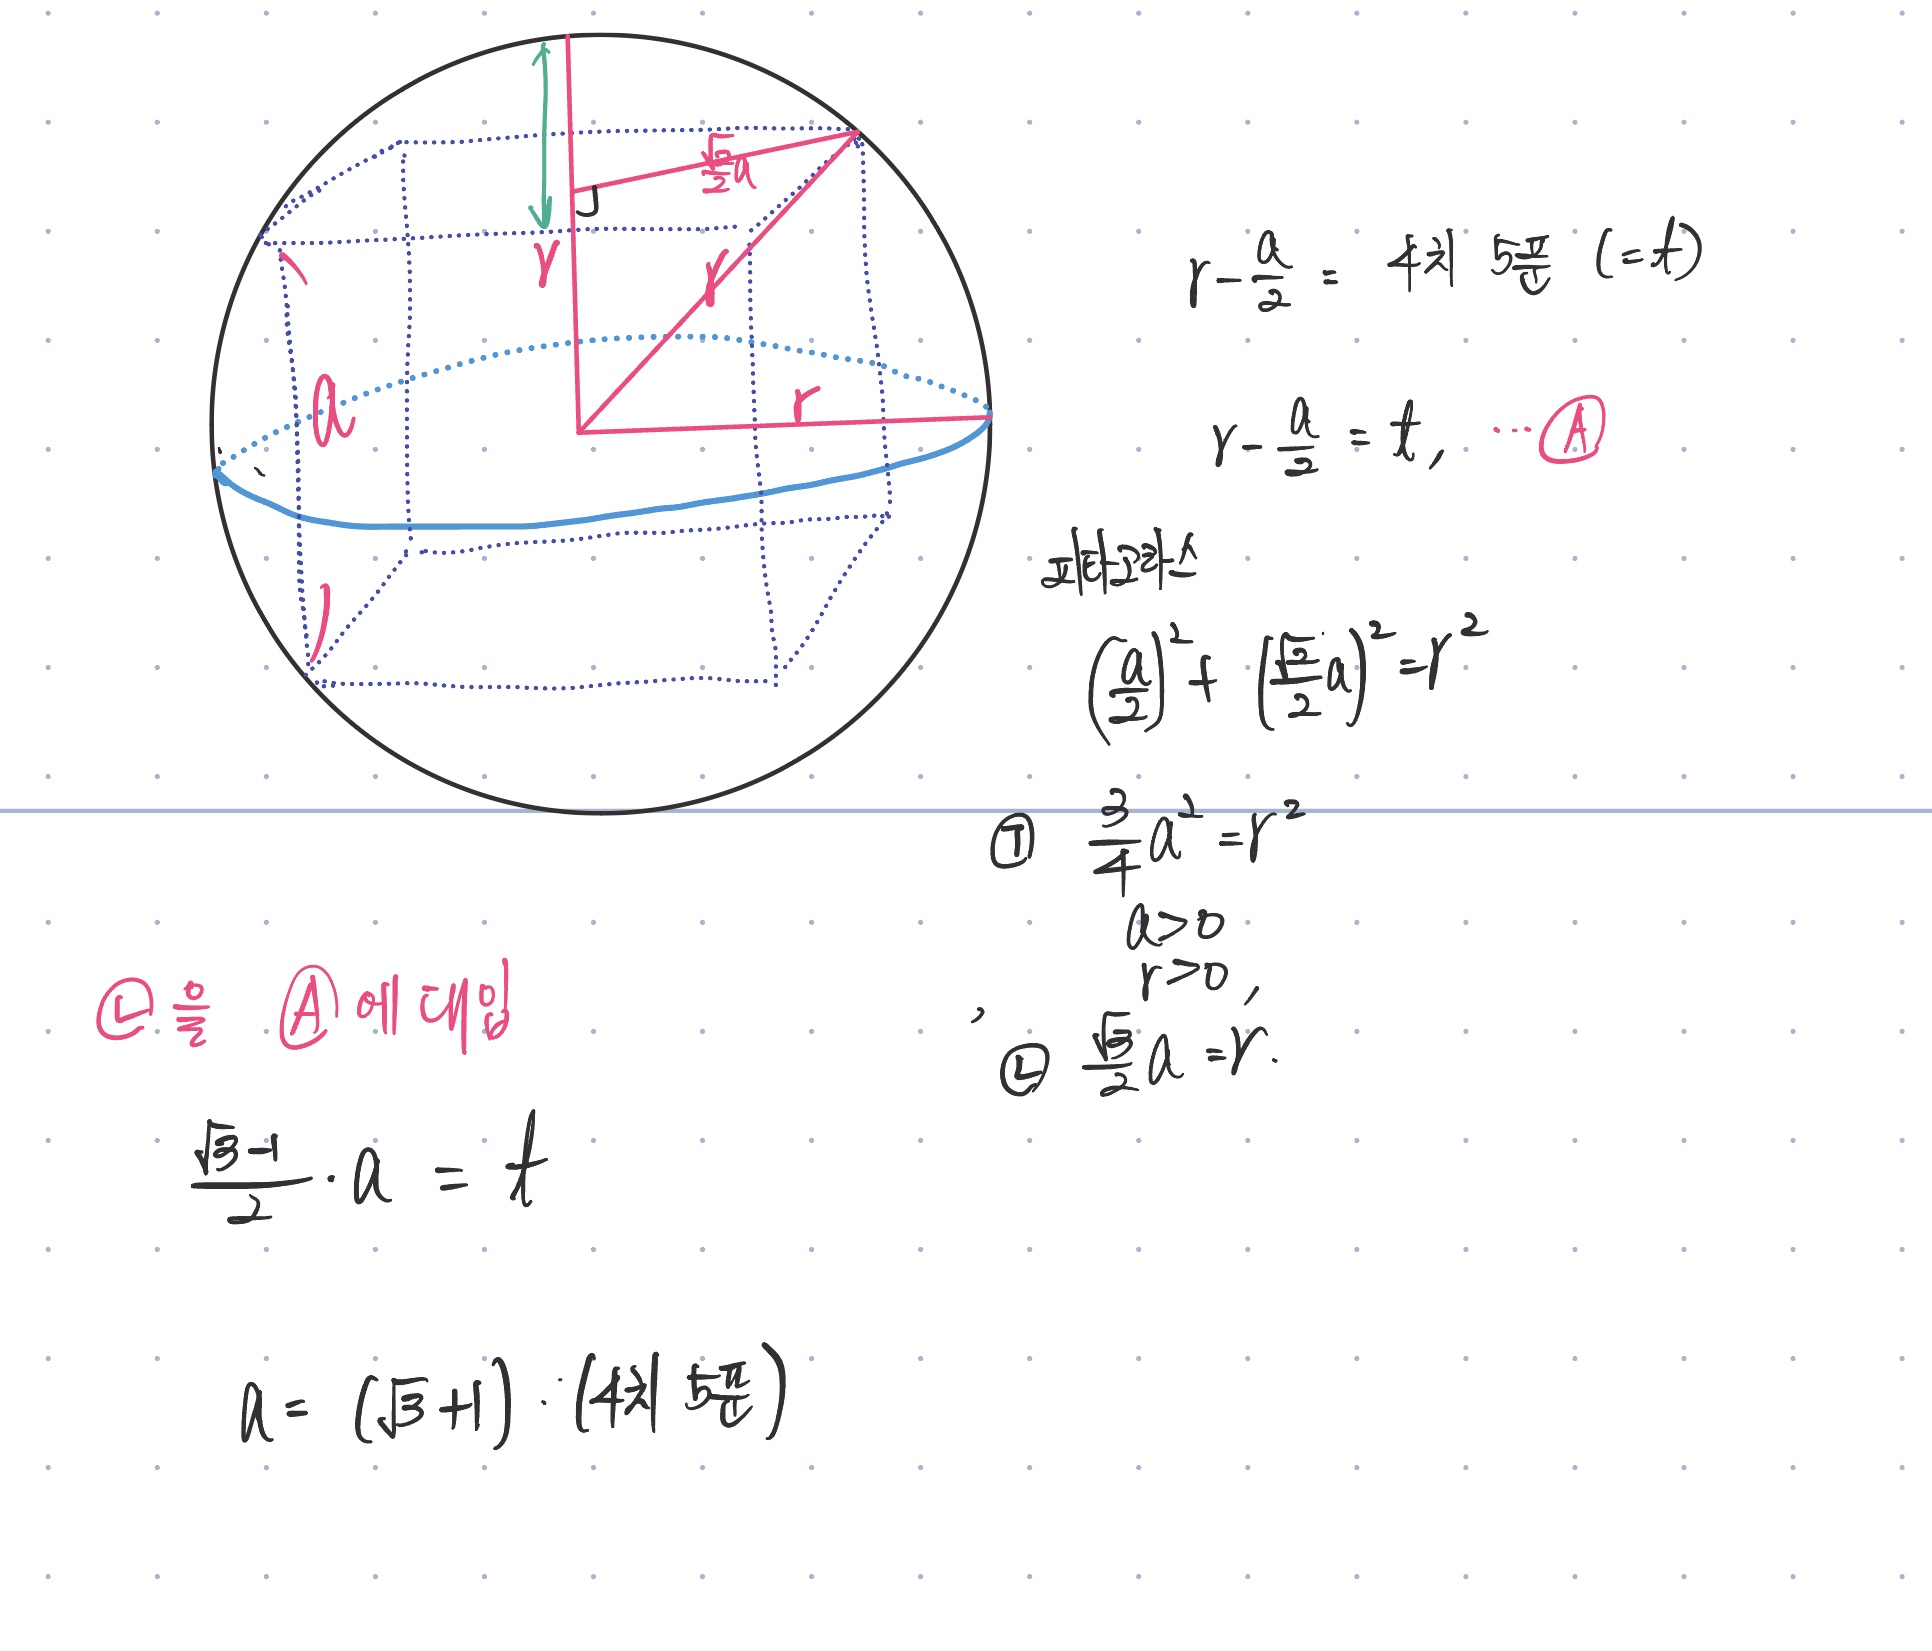 √2/2 a
r
r
r
a
r - a/2 = 4치 5푼 (=t)
r - a/2 = t, … Ⓐ
피타고라스
(a/2)² + (√2/2 a)² = r²
㉠ 3/4 a² = r²
a>0
r>0,
㉡ √3/2 a = r.
㉡을 Ⓐ에 대입
(√3-1)/2 · a = t
a = (√3+1) · (4치 5푼)